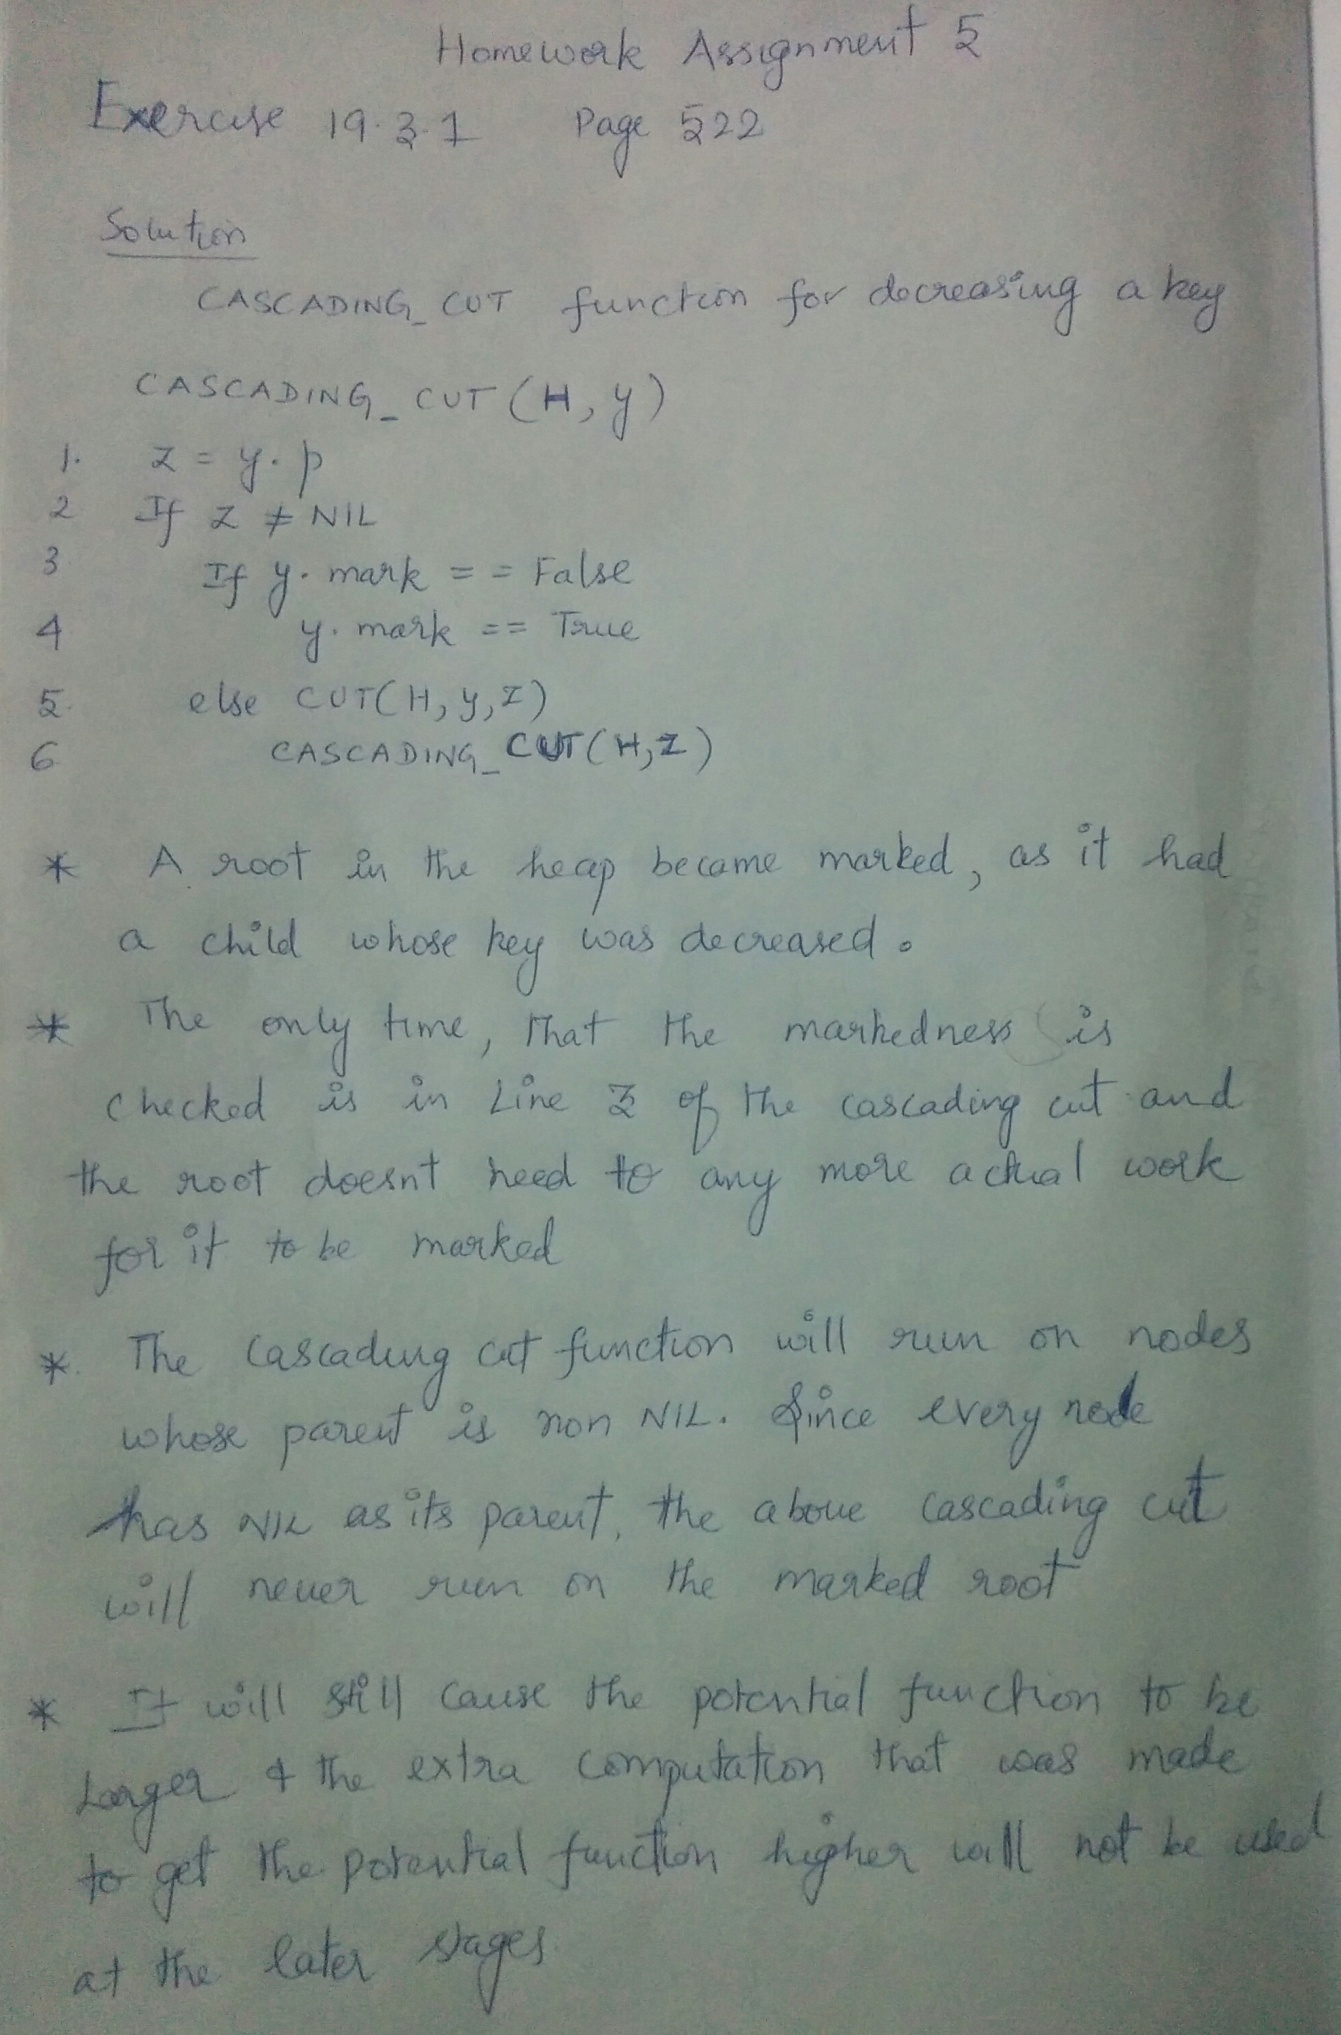 Homework Assignment 5
Exercise 19.3.1 Page 522
Solution
CASCADING_CUT function for decreasing a key
CASCADING_CUT (H, y)
1. z = y.p
2 If z ≠ NIL
3 If y.mark == False
4 y.mark == True
5. else CUT(H, y, z)
6 CASCADING_CUT(H,z)
* A root in the heap became marked, as it had
a child whose key was decreased.
* The only time, that the markedness is
checked is in Line 3 of the cascading cut and
the root doesnt need to any more actual work
for it to be marked
*. The Cascading cut function will run on nodes
whose parent is non NIL. Since every node
has NIL as its parent, the above cascading cut
will never run on the marked root
* It will still cause the potential function to be
Larger & the extra computation that was made
to get the potential function higher will not be used
at the later stages.